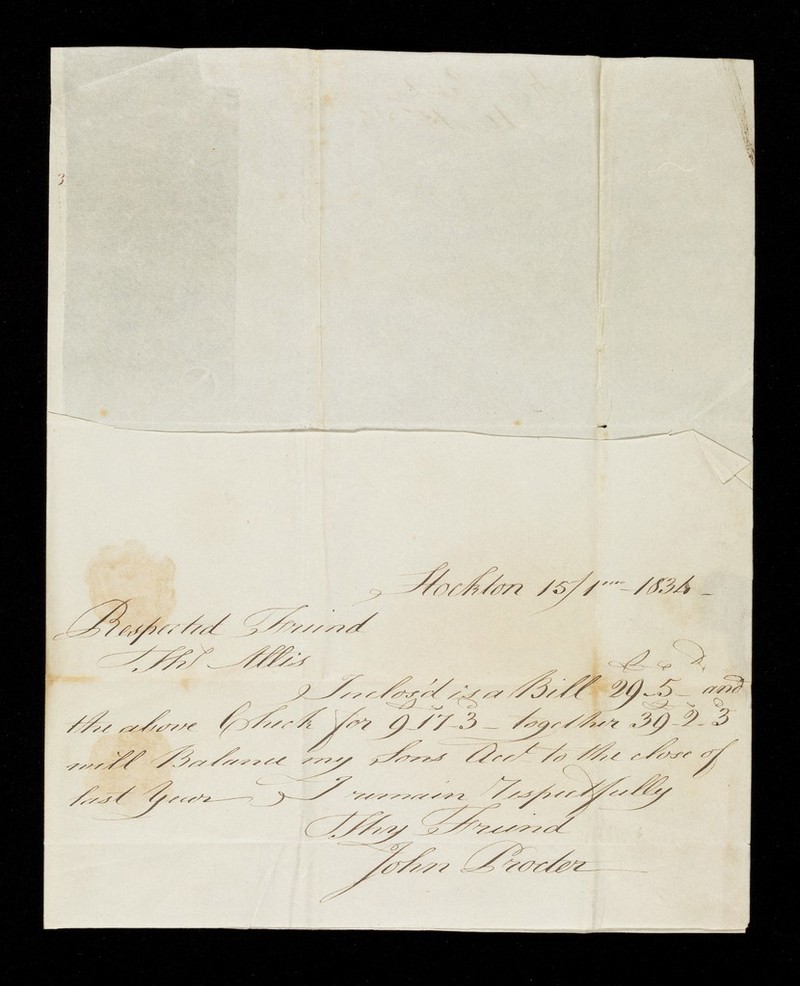 3
Stockton 15/1mo-1834-
Respected Friend
Thos Allis
£ s D
Inclos'd is a Bill 29-5- and
the above Check for 9-17-3- together 39-2-3
will Balance my Sons Acct to the close of
last Year I remain respectfully
Thy Friend
John Procter